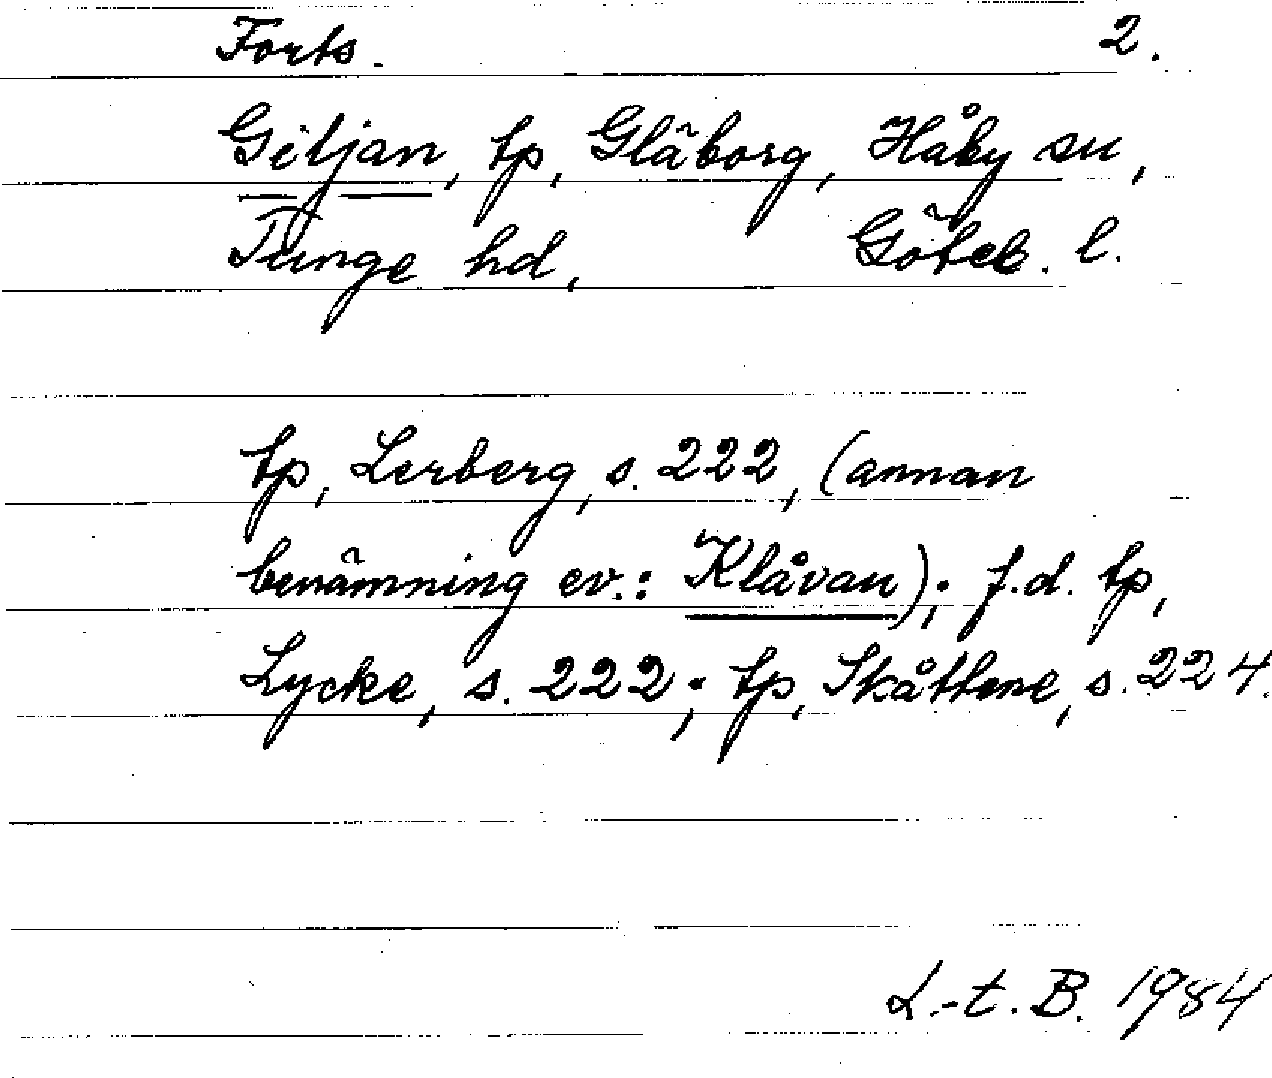 Forts. 2.
Giljan, tp, Gläborg, Håby sn,
Tunge hd, Göteb. l.
tp, Lerberg, s. 222, (annan
benämning ev.: Klåvan); f.d. tp,
Lycke, s. 222; tp, Skåttene, s. 224.
L.-t. B. 1984